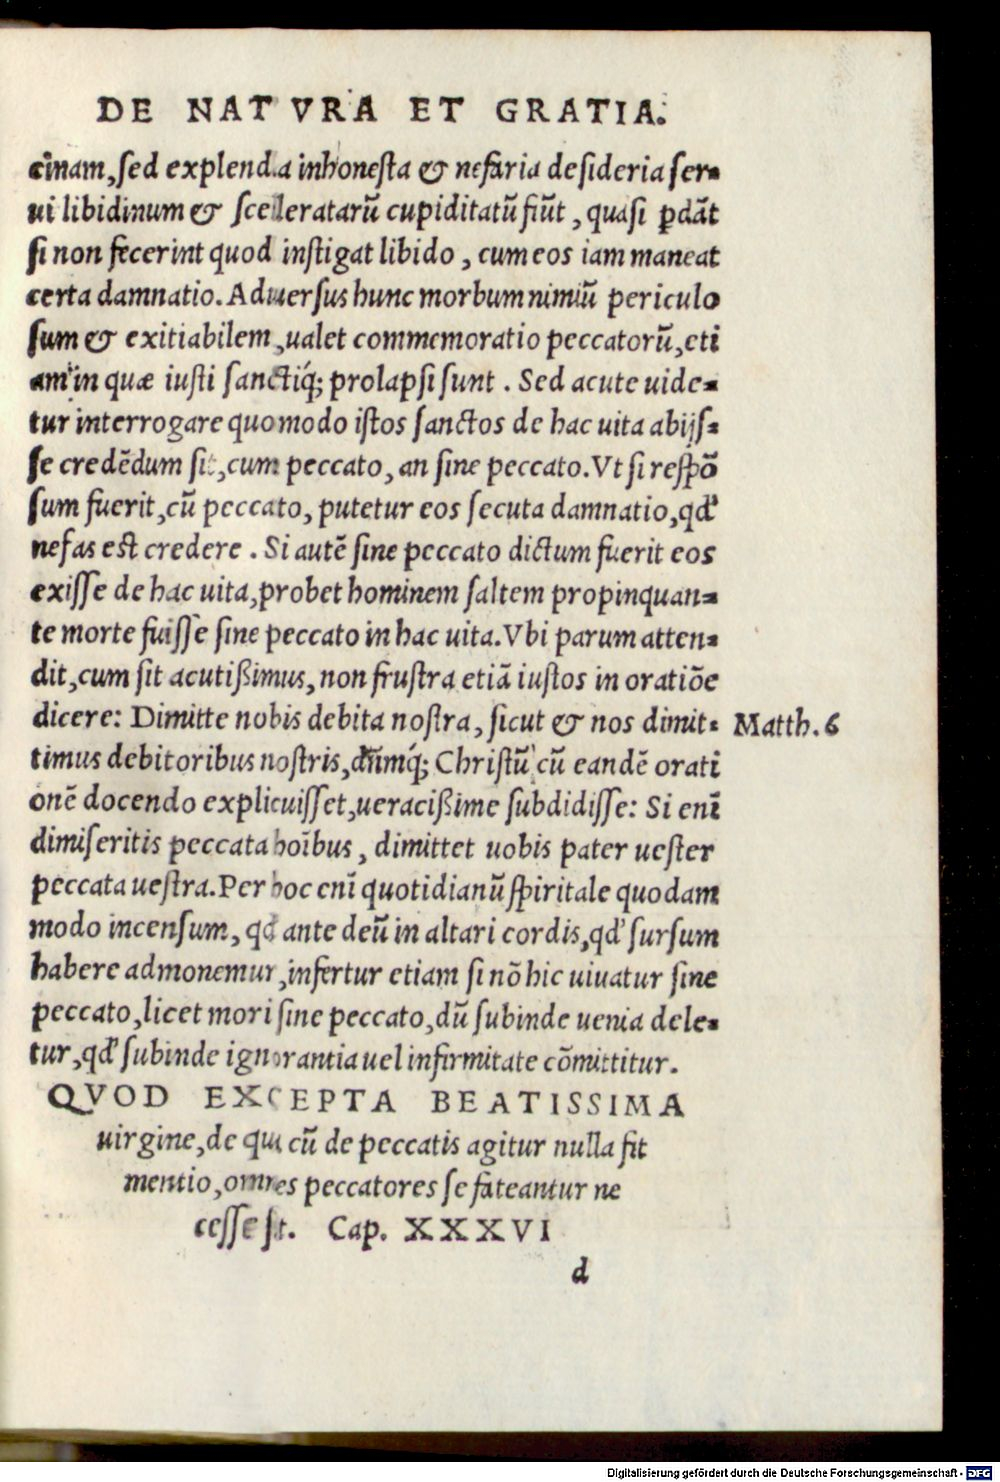 DE NATVRA ET GRATIA.
cinam, sed explenda inhonesta & nefaria desideria ser-
ui libidinum & sceleratarū cupiditatū fiūt, quasi ꝑdāt
si non fecerint quod instigat libido, cum eos iam maneat
certa damnatio. Aduersus hunc morbum nimiū periculo
sum & exitiabilem, ualet commemoratio peccatorū, eti
am in quæ iusti sanctiq́; prolapsi sunt. Sed acute uide-
tur interrogare quomodo istos sanctos de hac uita abijs-
se credēdum sit, cum peccato, an sine peccato. Vt si respō
sum fuerit, cū peccato, putetur eos secuta damnatio, qd'
nefas est credere. Si autē sine peccato dictum fuerit eos
exisse de hac uita, probet hominem saltem propinquan-
te morte fuisse sine peccato in hac uita. Vbi parum atten-
dit, cum sit acutißimus, non frustra etiā iustos in oratiōe
dicere: Dimitte nobis debita nostra, sicut & nos dimit-
Matth. 6
timus debitoribus nostris, dnmq́; Christū cū eandē orati
onē docendo explicuisset, ueracißime subdidisse: Si enī
dimiseritis peccata hoībus, dimittet uobis pater uester
peccata uestra. Per hoc enī quotidianū spiritale quodam
modo incensum, qd ante deū in altari cordis, qd' sursum
habere admonemur, infertur etiam si nō hic uiuatur sine
peccato, licet mori sine peccato, dū subinde uenia dele-
tur, qd' subinde ignorantia uel infirmitate cōmittitur.
QVOD EXCEPTA BEATISSIMA
uirgine, de qua cū de peccatis agitur nulla fit
mentio, omnes peccatores se fateantur ne
cesse sit. Cap. XXXVI
d
Digitalisierung gefördert durch die Deutsche Forschungsgemeinschaft - DFG